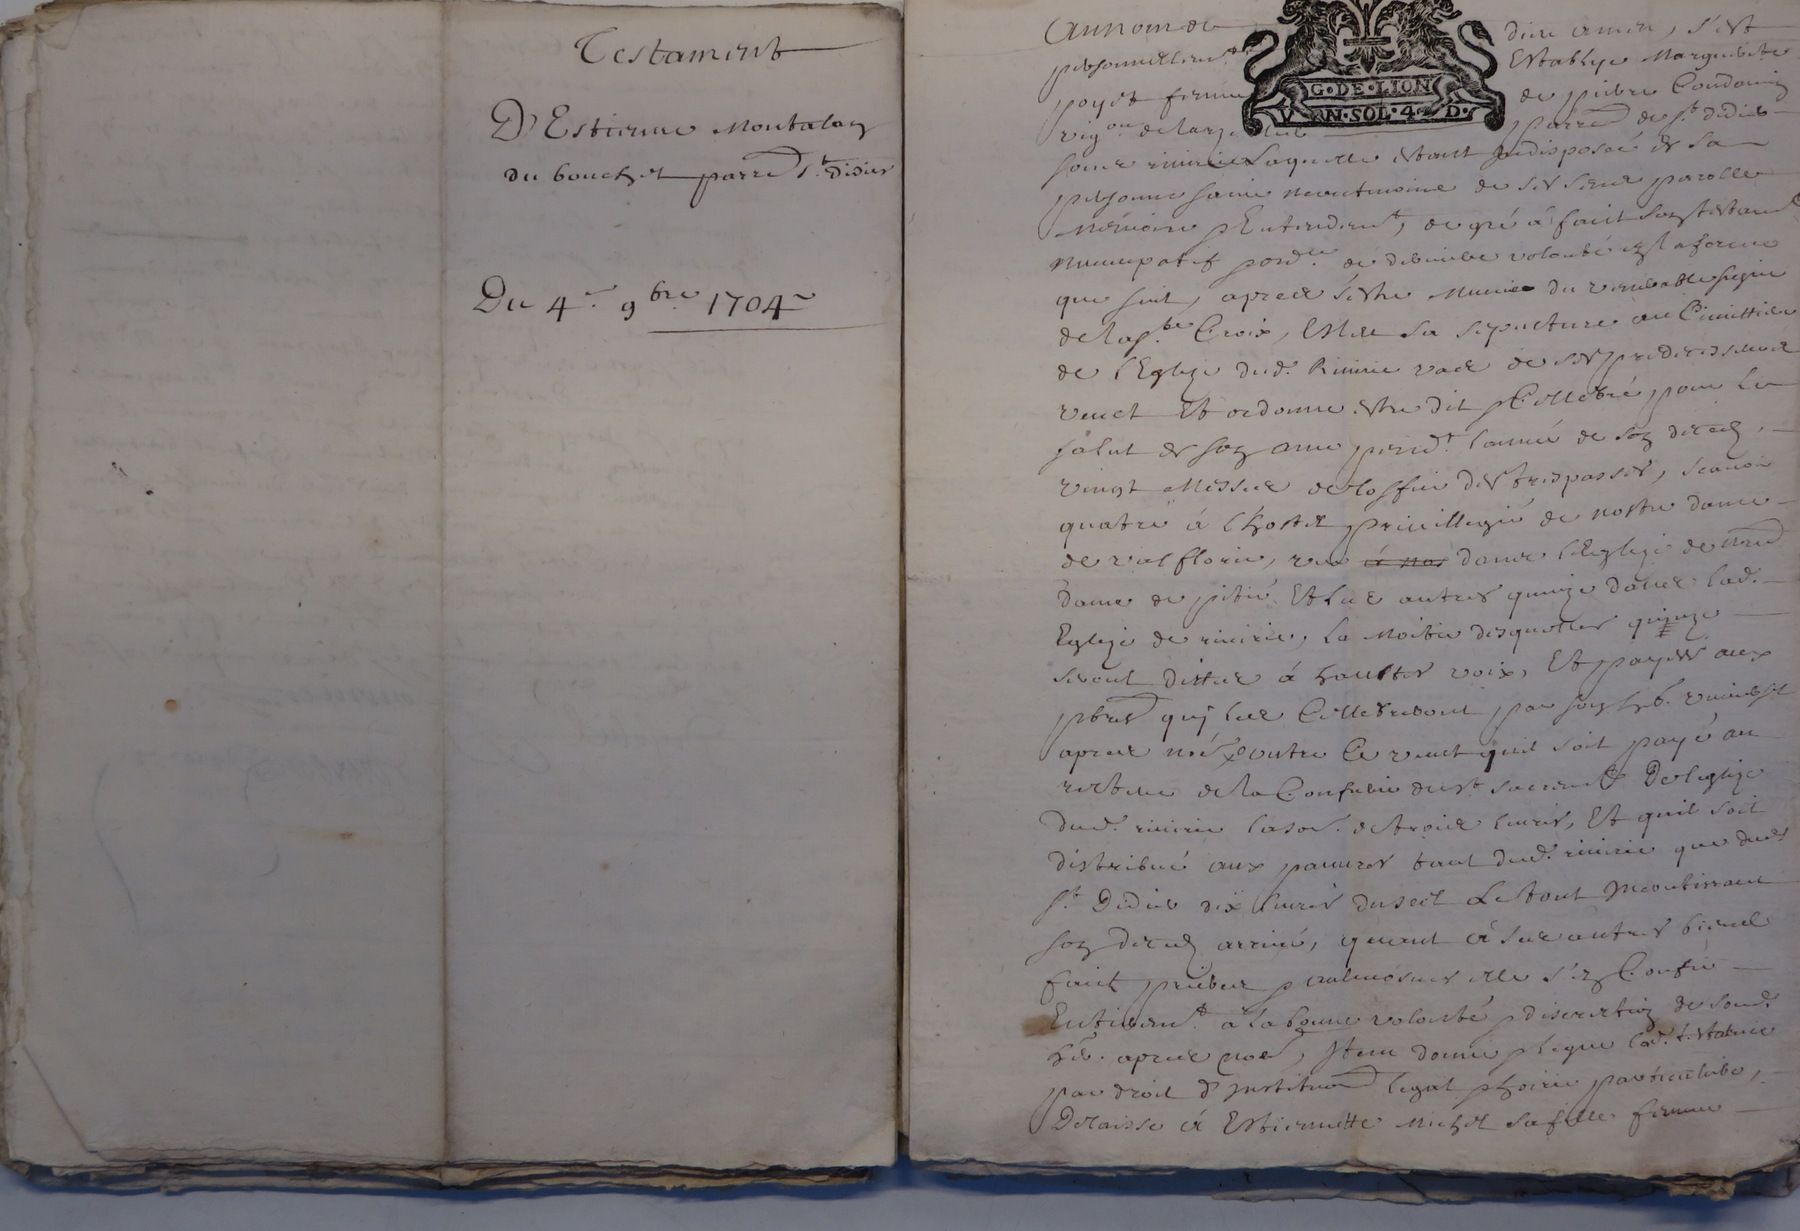 Testament
D'Estienne Montalan
du bouchet parre St. didier
Du 4e. 9bre. 1704
Au nom de dieu amen, s'est
personnellemt. Establye Marguerite
poyet femme de pierre Condamin
vign on de parre de st didier
soubz riuirie Laquelle estant Indisposée de sa
personne saine neantmoins de ses sens parolle
mémoire & Entendemt, de gré à fait son testamt
nuncupatif & ord.re de derniere volonté en la forme
que suit, apres s'estre Munie du venerable signe
de la ste. Croix, Eslit sa sepulture au Cimettiere
de l'Eglize dud. Riuirie vas de ses predecesseurs
veut Et ordonne estre dit & Cellebré pour le
salut de son ame pendt. l'année de son deceds,
vingt Messes de l'offie des trespasses, scauoir
quatre à l'hostel priuillegié de nostre dame
de valflorie, vne à nos dans l'Eglize de nre
dame de pitié Et les autres quinze dans lad.
Eglize de riuirie, la Moitie desquelles quinze
seront dittes à hautte voix, Et payées aux
pbres quj les Cellebreront par son hr. vniuersel
apres né, outre Ce veut quil soit payé au
recteur de la Confrerie du st sacremt De l'eglize
dud. riuirie la so. de trois liures, Et quil soit
distribué aux pauures tant dud. riuirie que dud
St. Didier dix liures du seel Le tout Incontinent
son deceds arriué, quant à ses autres biens
faits prieres & aulmosnes elle s'en Confie
Entieremt. à la bonne volonté & discretion de sond.
hr. apres né, Item donne & legue lad. testatrice
par droit d'Institution legat & hoirie particuliere,
Delaisse à Estiennette Michel sa fille femme
G·DE·LION
V·N·SOL·4·D·